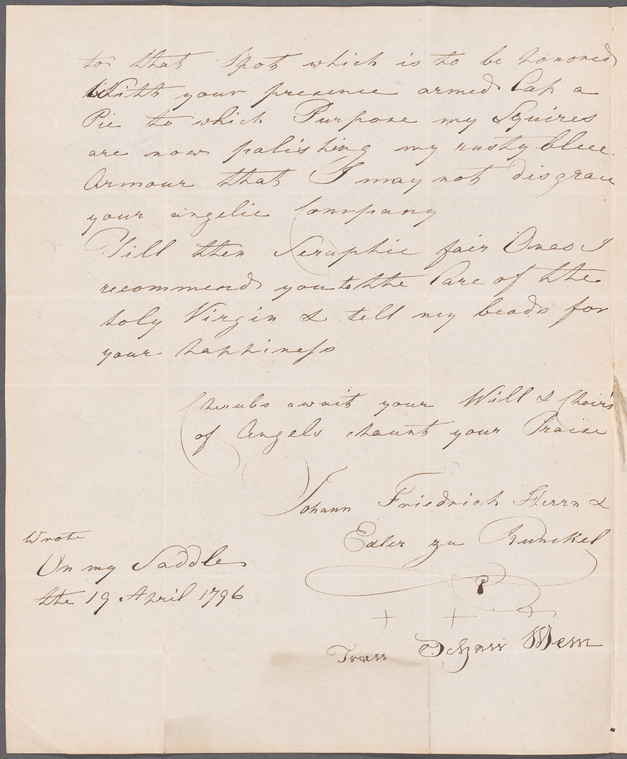 to that Spot which is to be honored
With your presence armed Cap a
Pie to which Purpose my Squires
are now polishing my rusty blue
Armour that I may not disgrace
your angelic Company
Till then Seraphic fair Ones I
recommend you to the Care of the
holy Virgin & tell my beads for
your happiness
Cherubs await your Will & Choirs
of Angels chaunt your Praise
Johann Friedrich Herrn &
Edler zu Runckel
Wrote
On my Saddle
the 19 April 1796
+ +